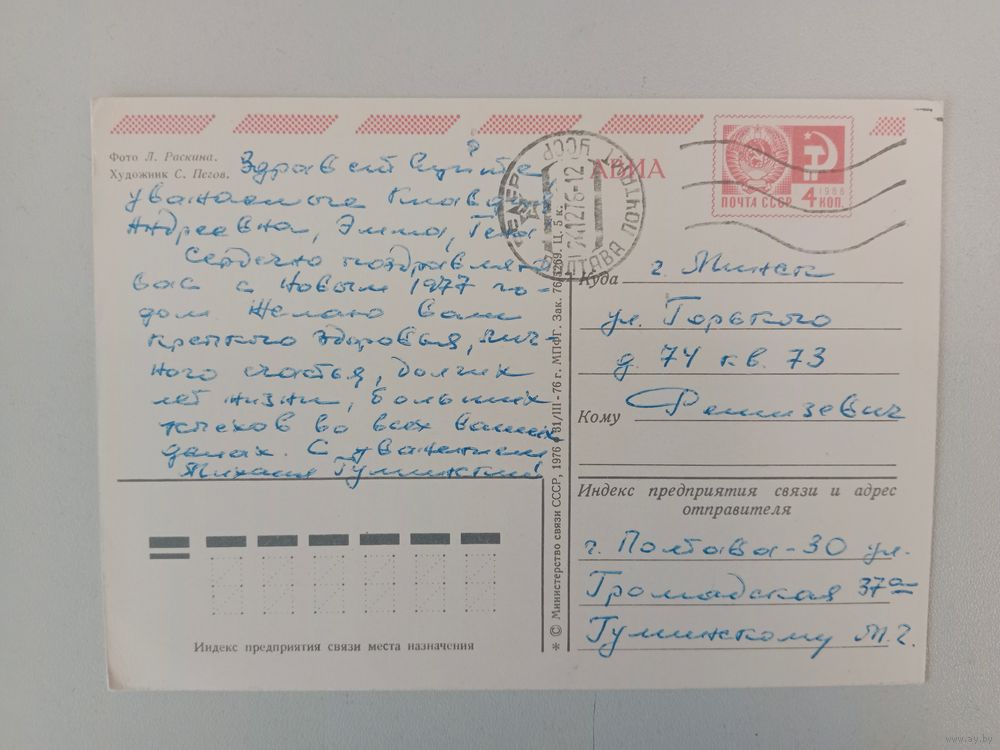 Фото Л. Раскина.
Художник С. Пегов.
АВИА
ПОЧТА СССР 4 КОП.
1966
ПОЛТАВА ПОЧТАМТ УССР
241276-12
Здравствуйте
уважаемые Клавдия
Андреевна, Эмма, Гена
Сердечно поздравляю
вас с Новым 1977 го-
дом. Желаю вам
крепкого здоровья, лич-
ного счастья, долгих
лет жизни, больших
успехов во всех ваших
делах. С уважением
Михаил Гуминский
Куда г. Минск
ул. Горького
д. 74 кв. 73
Кому Ремизевич
Индекс предприятия связи и адрес
отправителя
г. Полтава-30 ул.
Громадская 37а
Гуминскому М. Г.
Индекс предприятия связи места назначения
* © Министерство связи СССР, 1976 г. 31/III-76 г. МПФГ. Зак. 76-5269. Ц. 5 к.
www.ay.by